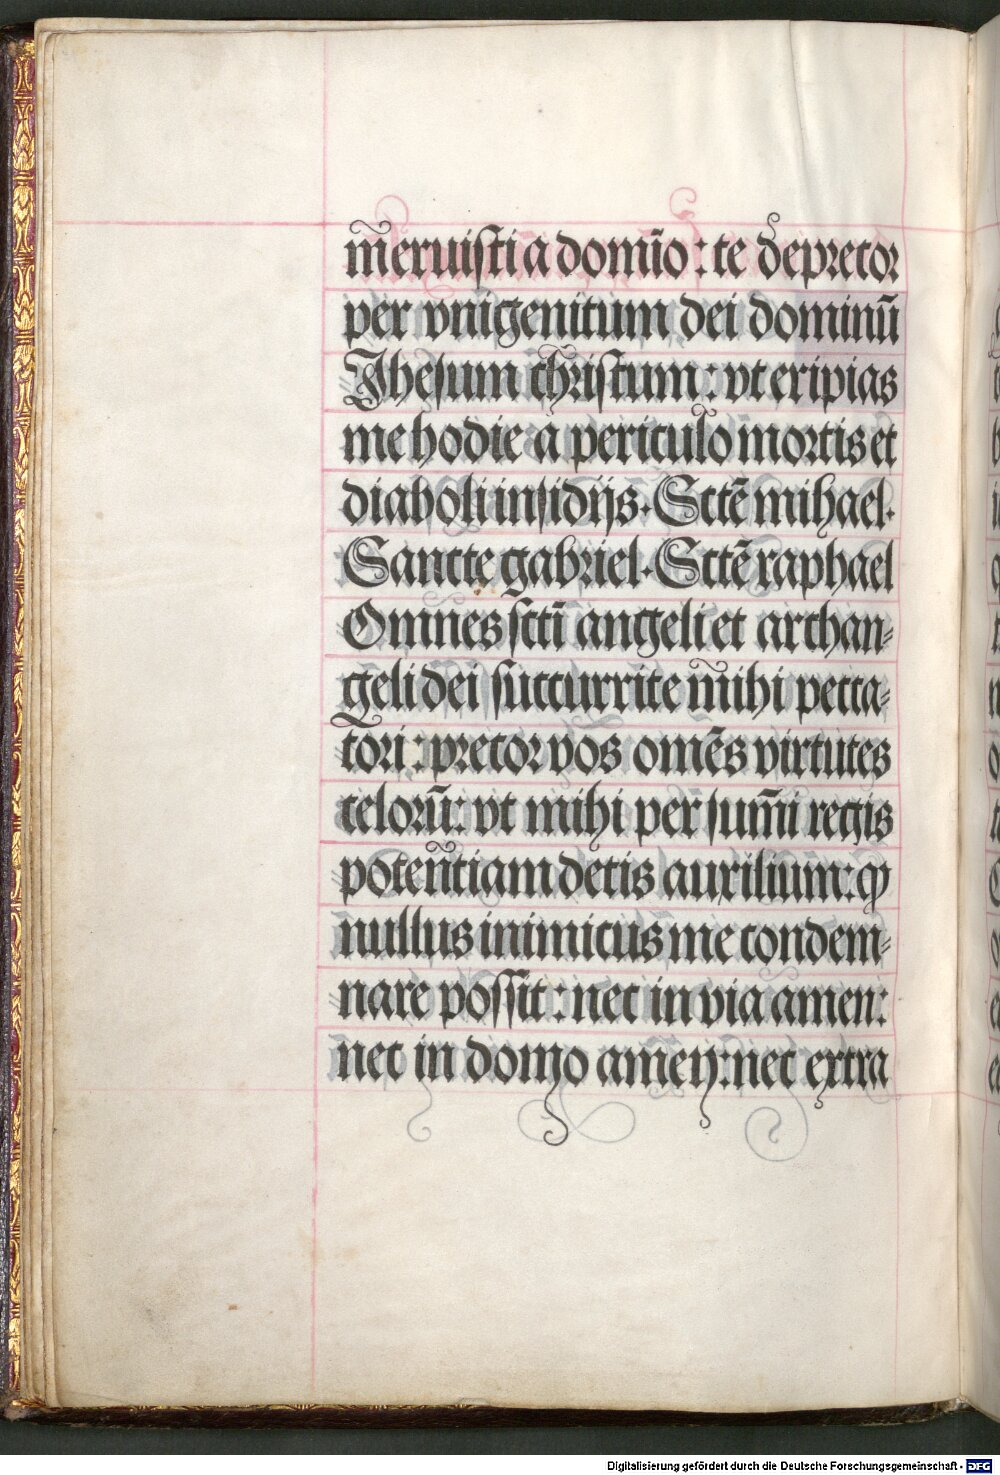 m̄eruisti a domīo : te depretor
per vnigenitum dei dominū
Jhesum christum : vt eripias
me hodie a periculo mortis et
diaboli insidijs. Sctē mihael.
Sancte gabriel. Sctē raphael
Omnes sctī angeli et archan-
geli dei succurrite mihi pecca-
tori : precor vos omēs virtutes
celorū : vt mihi per sum̄i regis
poten̄tiam detis auxilium : ꝙ
nullus inimicus me condem-
nare possit : nec in via amen :
nec in domo amen : nec extra
Digitalisierung gefördert durch die Deutsche Forschungsgemeinschaft - DFG